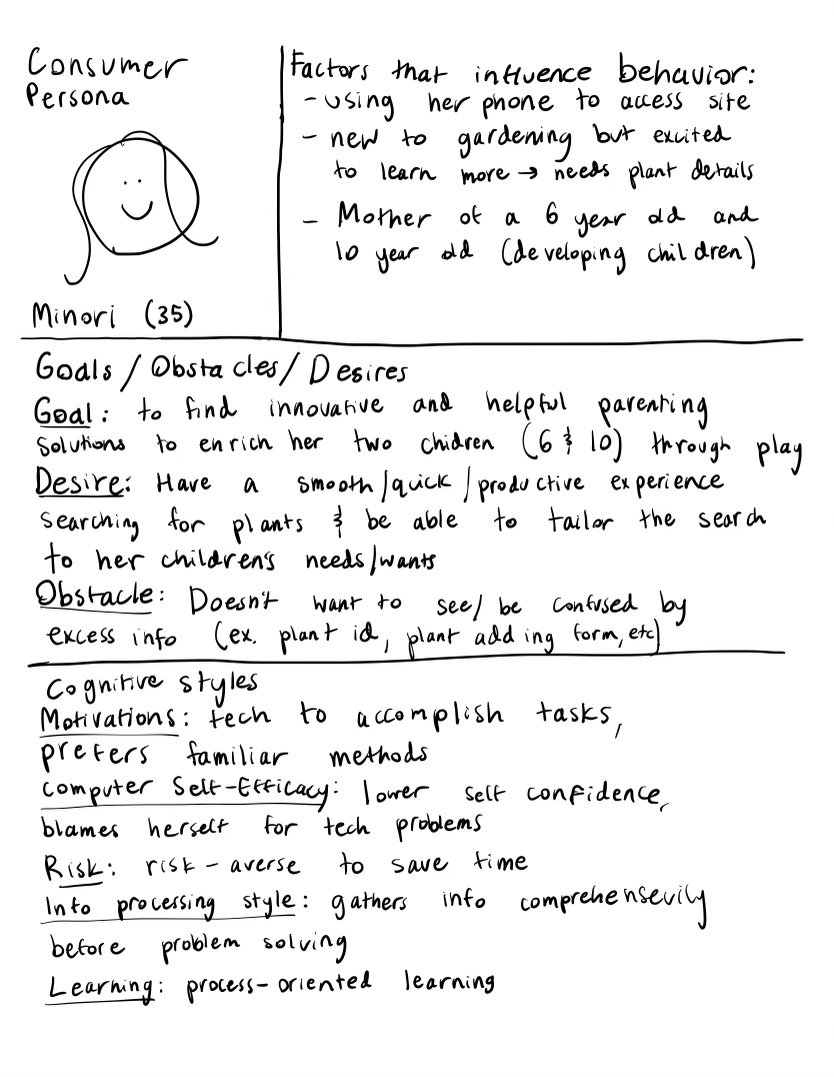 Consumer
Persona
Minori (35)
Factors that influence behavior:
- using her phone to access site
- new to gardening but excited
to learn more → needs plant details
- Mother of a 6 year old and
10 year old (developing children)
Goals / Obstacles / Desires
Goal: to find innovative and helpful parenting
solutions to enrich her two chidren (6 & 10) through play
Desire: Have a smooth/quick/productive experience
searching for plants & be able to tailor the search
to her children's needs/wants
Obstacle: Doesn't want to see/ be confused by
excess info (ex. plant id, plant adding form, etc)
Cognitive styles
Motivations: tech to accomplish tasks,
prefers familiar methods
Computer Self-Efficacy: lower self confidence,
blames herself for tech problems
Risk: risk-averse to save time
Info processing style: gathers info comprehensevily
before problem solving
Learning: process-oriented learning